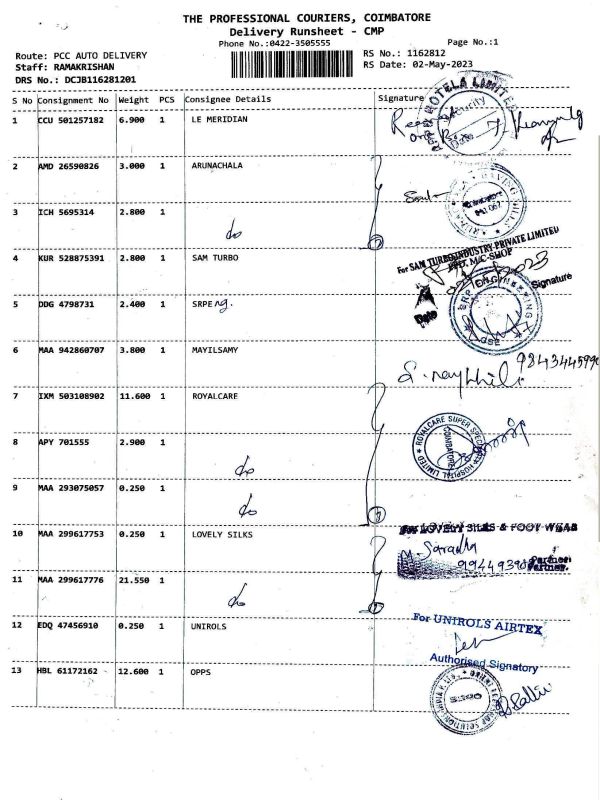 THE PROFESSIONAL COURIERS, COIMBATORE
Delivery Runsheet - CMP
Phone No.:0422-3505555 Page No.:1
Route: PCC AUTO DELIVERY RS No.: 1162812
Staff: RAMAKRISHAN RS Date: 02-May-2023
DRS No.: DCJB116281201
S No Consignment No Weight PCS Consignee Details Signature
1 CCU 501257182 6.900 1 LE MERIDIAN
HOTELA LIMITED
Security
Date
2 AMD 26590826 3.000 1 ARUNACHALA
3 ICH 5695314 2.800 1 do
4 KUR 528875391 2.800 1 SAM TURBO
For SAM TURBO INDUSTRY PRIVATE LIMITED
M/C-SHOP
Date Signature
5 DDG 4798731 2.400 1 SRPEng.
6 MAA 942860707 3.800 1 MAYILSAMY
7 IXM 503108902 11.600 1 ROYALCARE
ROYALCARE SUPER SPECIALITY HOSPITAL LIMITED
COIMBATORE
8 APY 701555 2.900 1 do
9 MAA 293075057 0.250 1 do
10 MAA 299617753 0.250 1 LOVELY SILKS
For LOVELY SILKS & FOOT WEAR
M. Saradha
Partner.
11 MAA 299617776 21.550 1 do
12 EDQ 47456910 0.250 1 UNIROLS
For UNIROLS AIRTEX
Authorised Signatory
13 HBL 61172162 12.600 1 OPPS